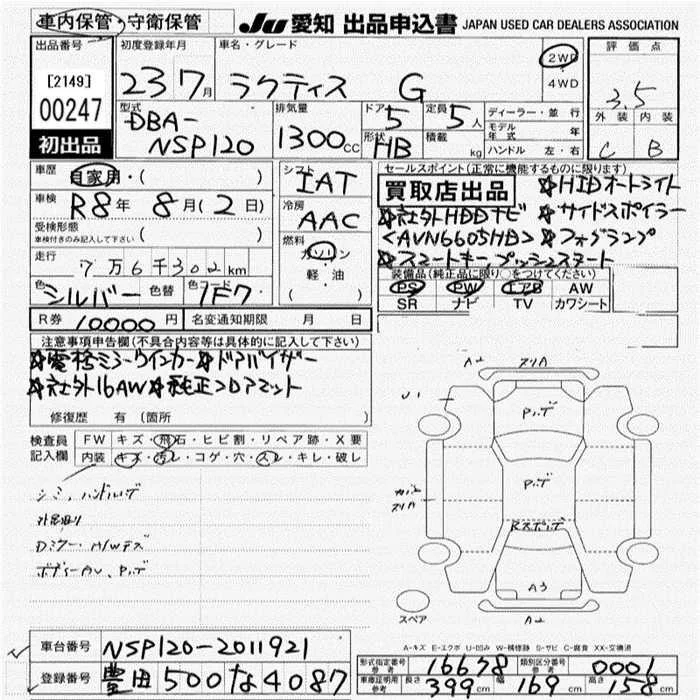 車内保管・守衛保管
JU 愛知 出品申込書 JAPAN USED CAR DEALERS ASSOCIATION
出品番号
[2149]
00247
初出品
初度登録年月
23 7月
車名・グレード
ラクティス G
2WD・4WD
評価点
3.5
外装 内装
C B
型式
DBA-
NSP120
排気量
1300cc
ドア 5
形状 HB
定員 5人
積載 kg
ディーラー・並行
モデル年式 年
ハンドル 左・右
車歴
自家用・( )
車検
R8年 8月(2日)
受検形態
車検付きのみ記入して下さい ( )
走行
7万6千302km
色 シルバー 色替 色コード 1F7
シフト
IAT
冷房
AAC
燃料
ガソリン
軽・油
( )
R券 10000円 名変通知期限 月 日
セールスポイント(正常に機能するものに限ります)
買取店出品 ☆HIDオートライト
☆社外HDDナビ ☆サイドスポイラー
<AVN6605HD> ☆フォグランプ
☆スマートキー プッシュスタート
装備品(純正品に限り○をつけてください)
PS PW エアB AW
SR ナビ TV カワシート
注意事項申告欄(不具合内容等は具体的に記入して下さい)
☆電格ミラーウインカー☆ドアバイザー
☆社外16AW☆純正フロアマット
修復歴 有(箇所
検査員記入欄
FW キズ・飛石・ヒビ割・リペア跡・X要
内装 キズ・汚レ・コゲ・穴・スレ・キレ・破レ
シミ、ハンドル
Dミラー・
ボディー
A2
スリA
U1
スリA
A3
A2
スペア
A-キズ E-エクボ U-凹み W-補修跡 S-サビ C-腐食 XX-交換済
車台番号 NSP120-2011921
登録番号 豊田500な4087
形式指定番号 参考 16678 類別区分番号 参考 0001
車庫証明用 参考 長さ 399cm 幅 169cm 高さ 158cm